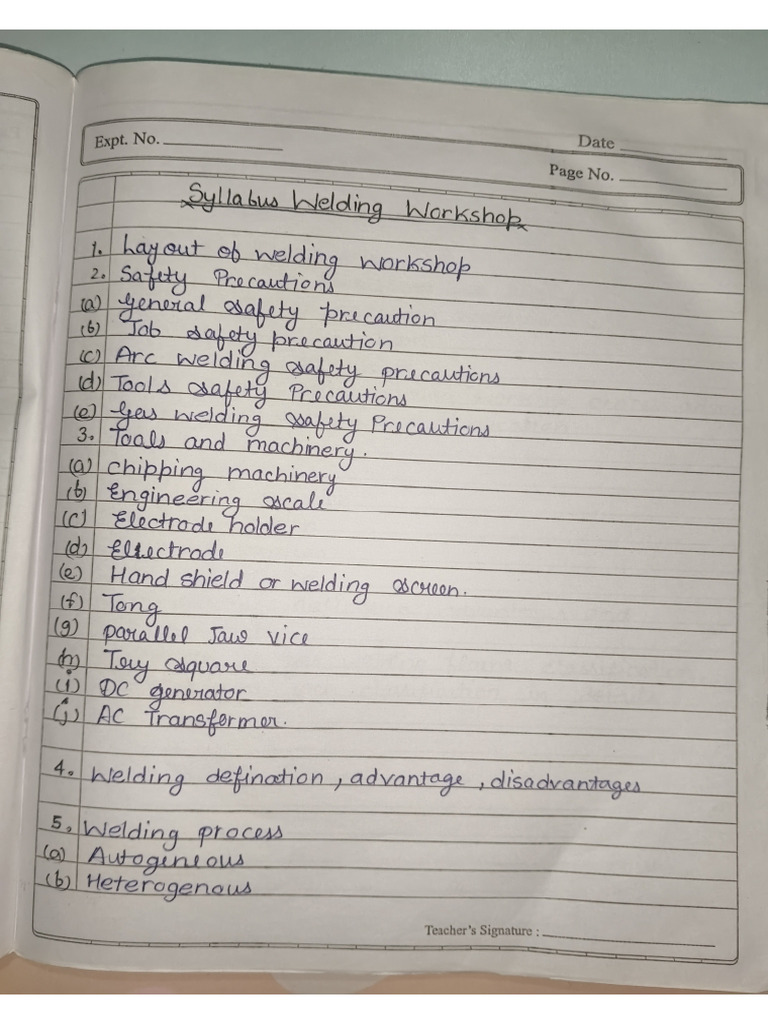 Expt. No.
Date
Page No.
Syllabus Welding Workshop
1. Layout of welding workshop
2. Safety Precautions
(a) General safety precaution
(b) Job safety precaution
(c) Arc welding safety precautions
(d) Tools safety Precautions
(e) Gas welding safety Precautions
3. Tools and machinery.
(a) chipping machinery
(b) Engineering scale
(c) Electrode holder
(d) Electrode
(e) Hand shield or welding screen.
(f) Tong
(g) parallel Jaw vice
(h) Try square
(i) DC generator
(j) AC Transformer.
4. Welding defination, advantage, disadvantages
5. Welding process
(a) Autogeneous
(b) Heterogenous
Teacher's Signature :